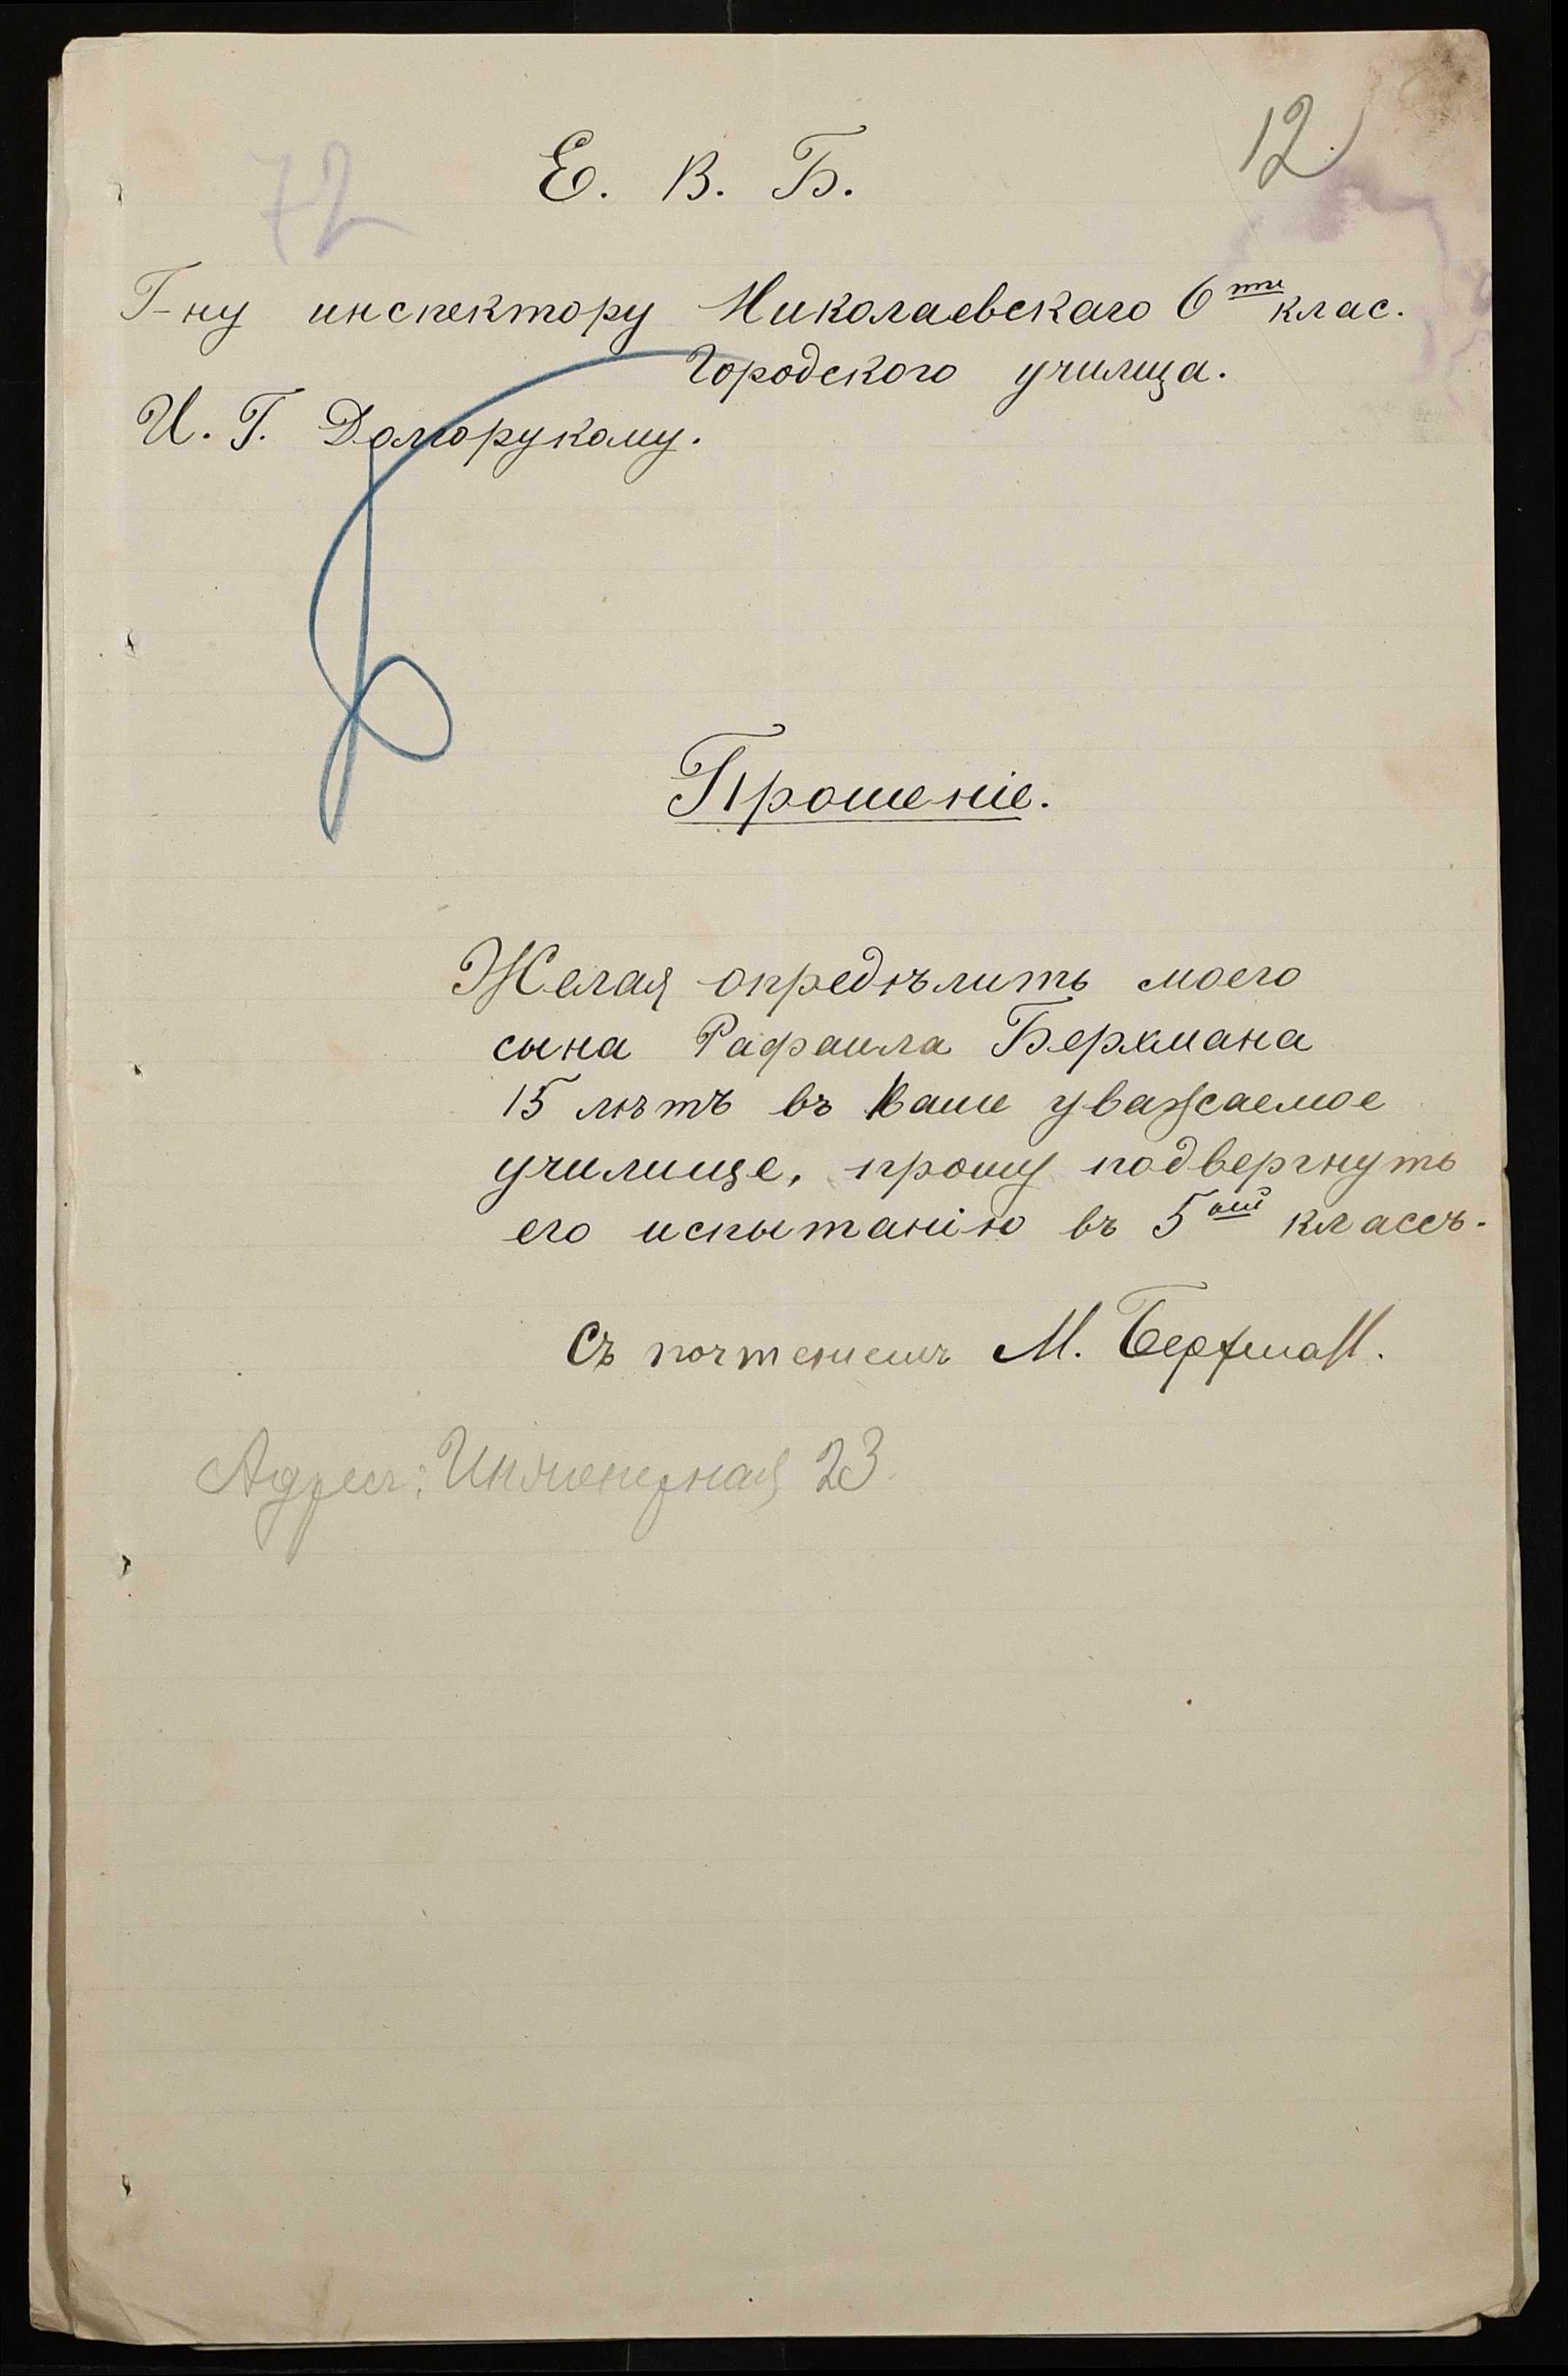 12
72
Е. В. Б.
Г-ну инспектору Николаевскаго 6ти клас.
Городского училища.
И. Г. Долгорукому.
Прошеніе.
Желая опредѣлить моего
сына Рафаила Берхмана
15 лѣтъ въ Ваше уважаемое
училище, прошу подвергнуть
его испытанію въ 5ый классъ.
Съ почтеніемъ М. Берхман.
Адресъ: Инженерная 23